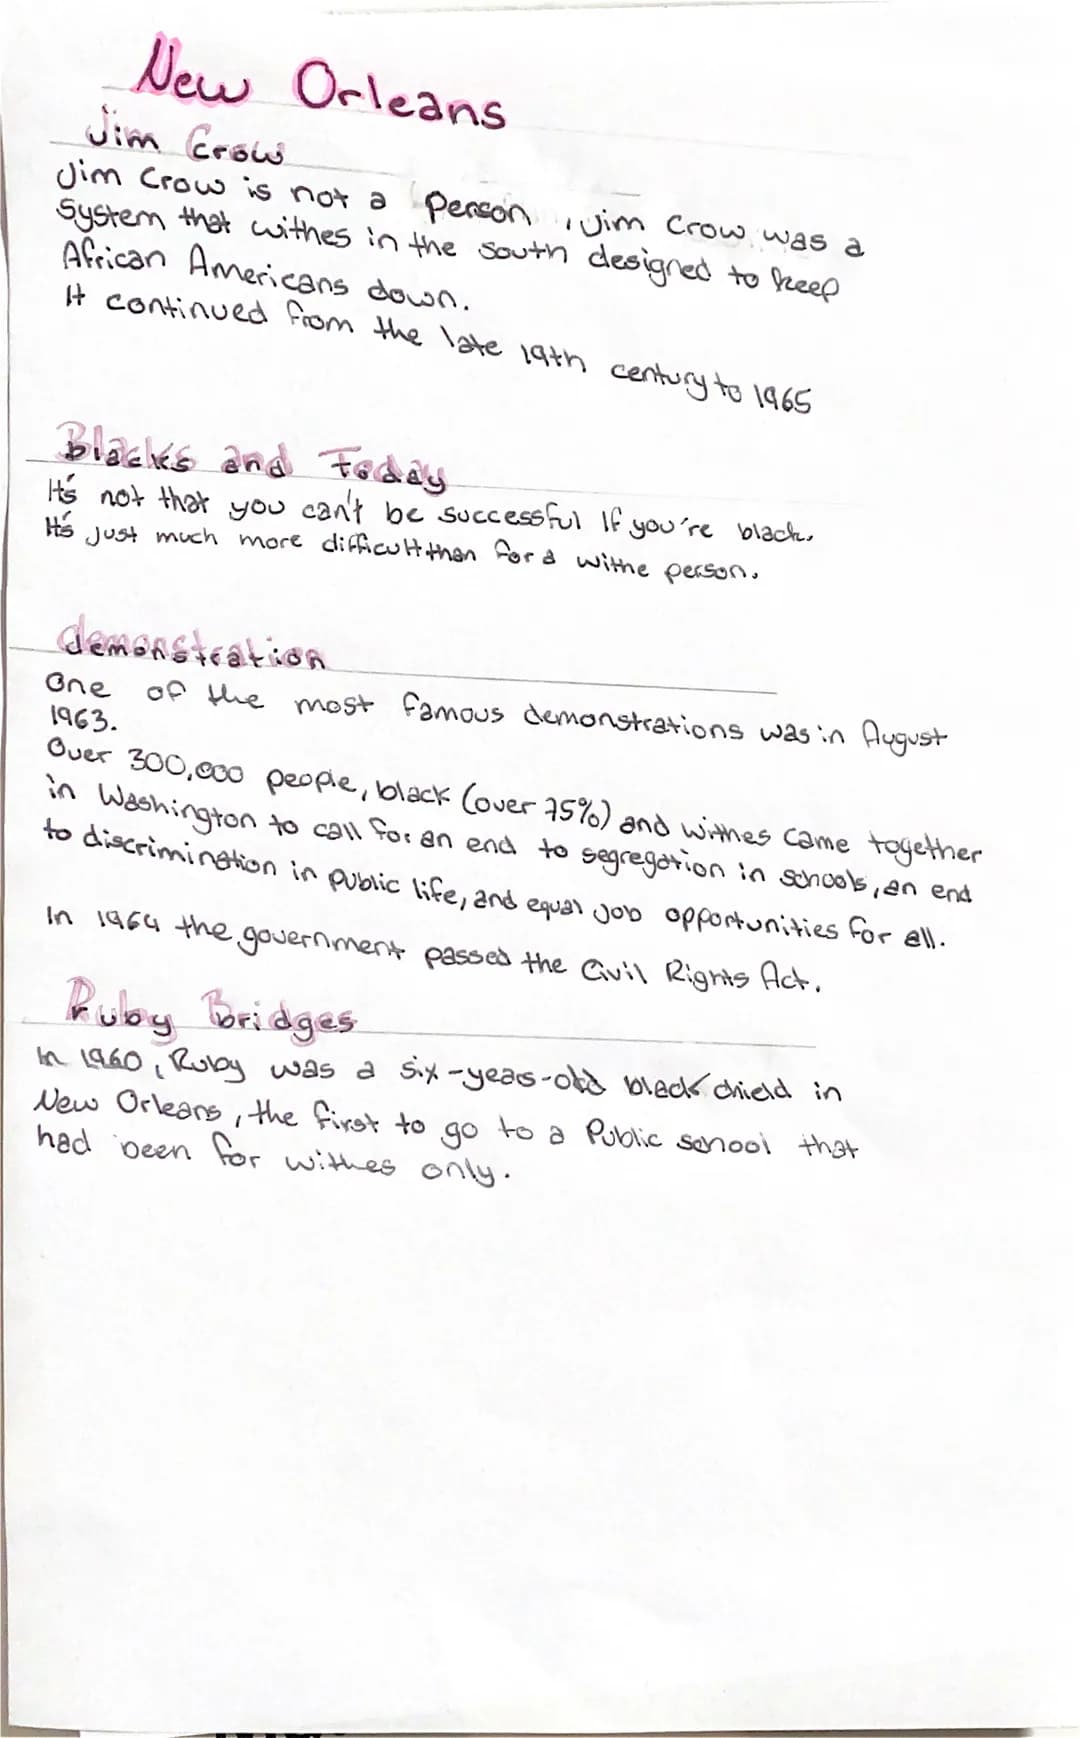 New Orleans
Jim Crow
Jim Crow is not a person, Jim Crow was a
System that withes in the south designed to keep
African Americans down.
It continued from the late 19th century to 1965
Blacks and Today
It's not that you can't be successful If you're black.
It's just much more difficult than for a withe person.
demonstration
One of the most famous demonstrations was in August
1963.
Over 300,000 people, black (over 75%) and withes came together
in Washington to call for an end to segregation in schools, an end
to discrimination in public life, and equal job opportunities for all.
In 1964 the government passed the Civil Rights Act.
Ruby Bridges
In 1960, Ruby was a six-years-old black chield in
New Orleans, the first to go to a Public school that
had been for withes only.